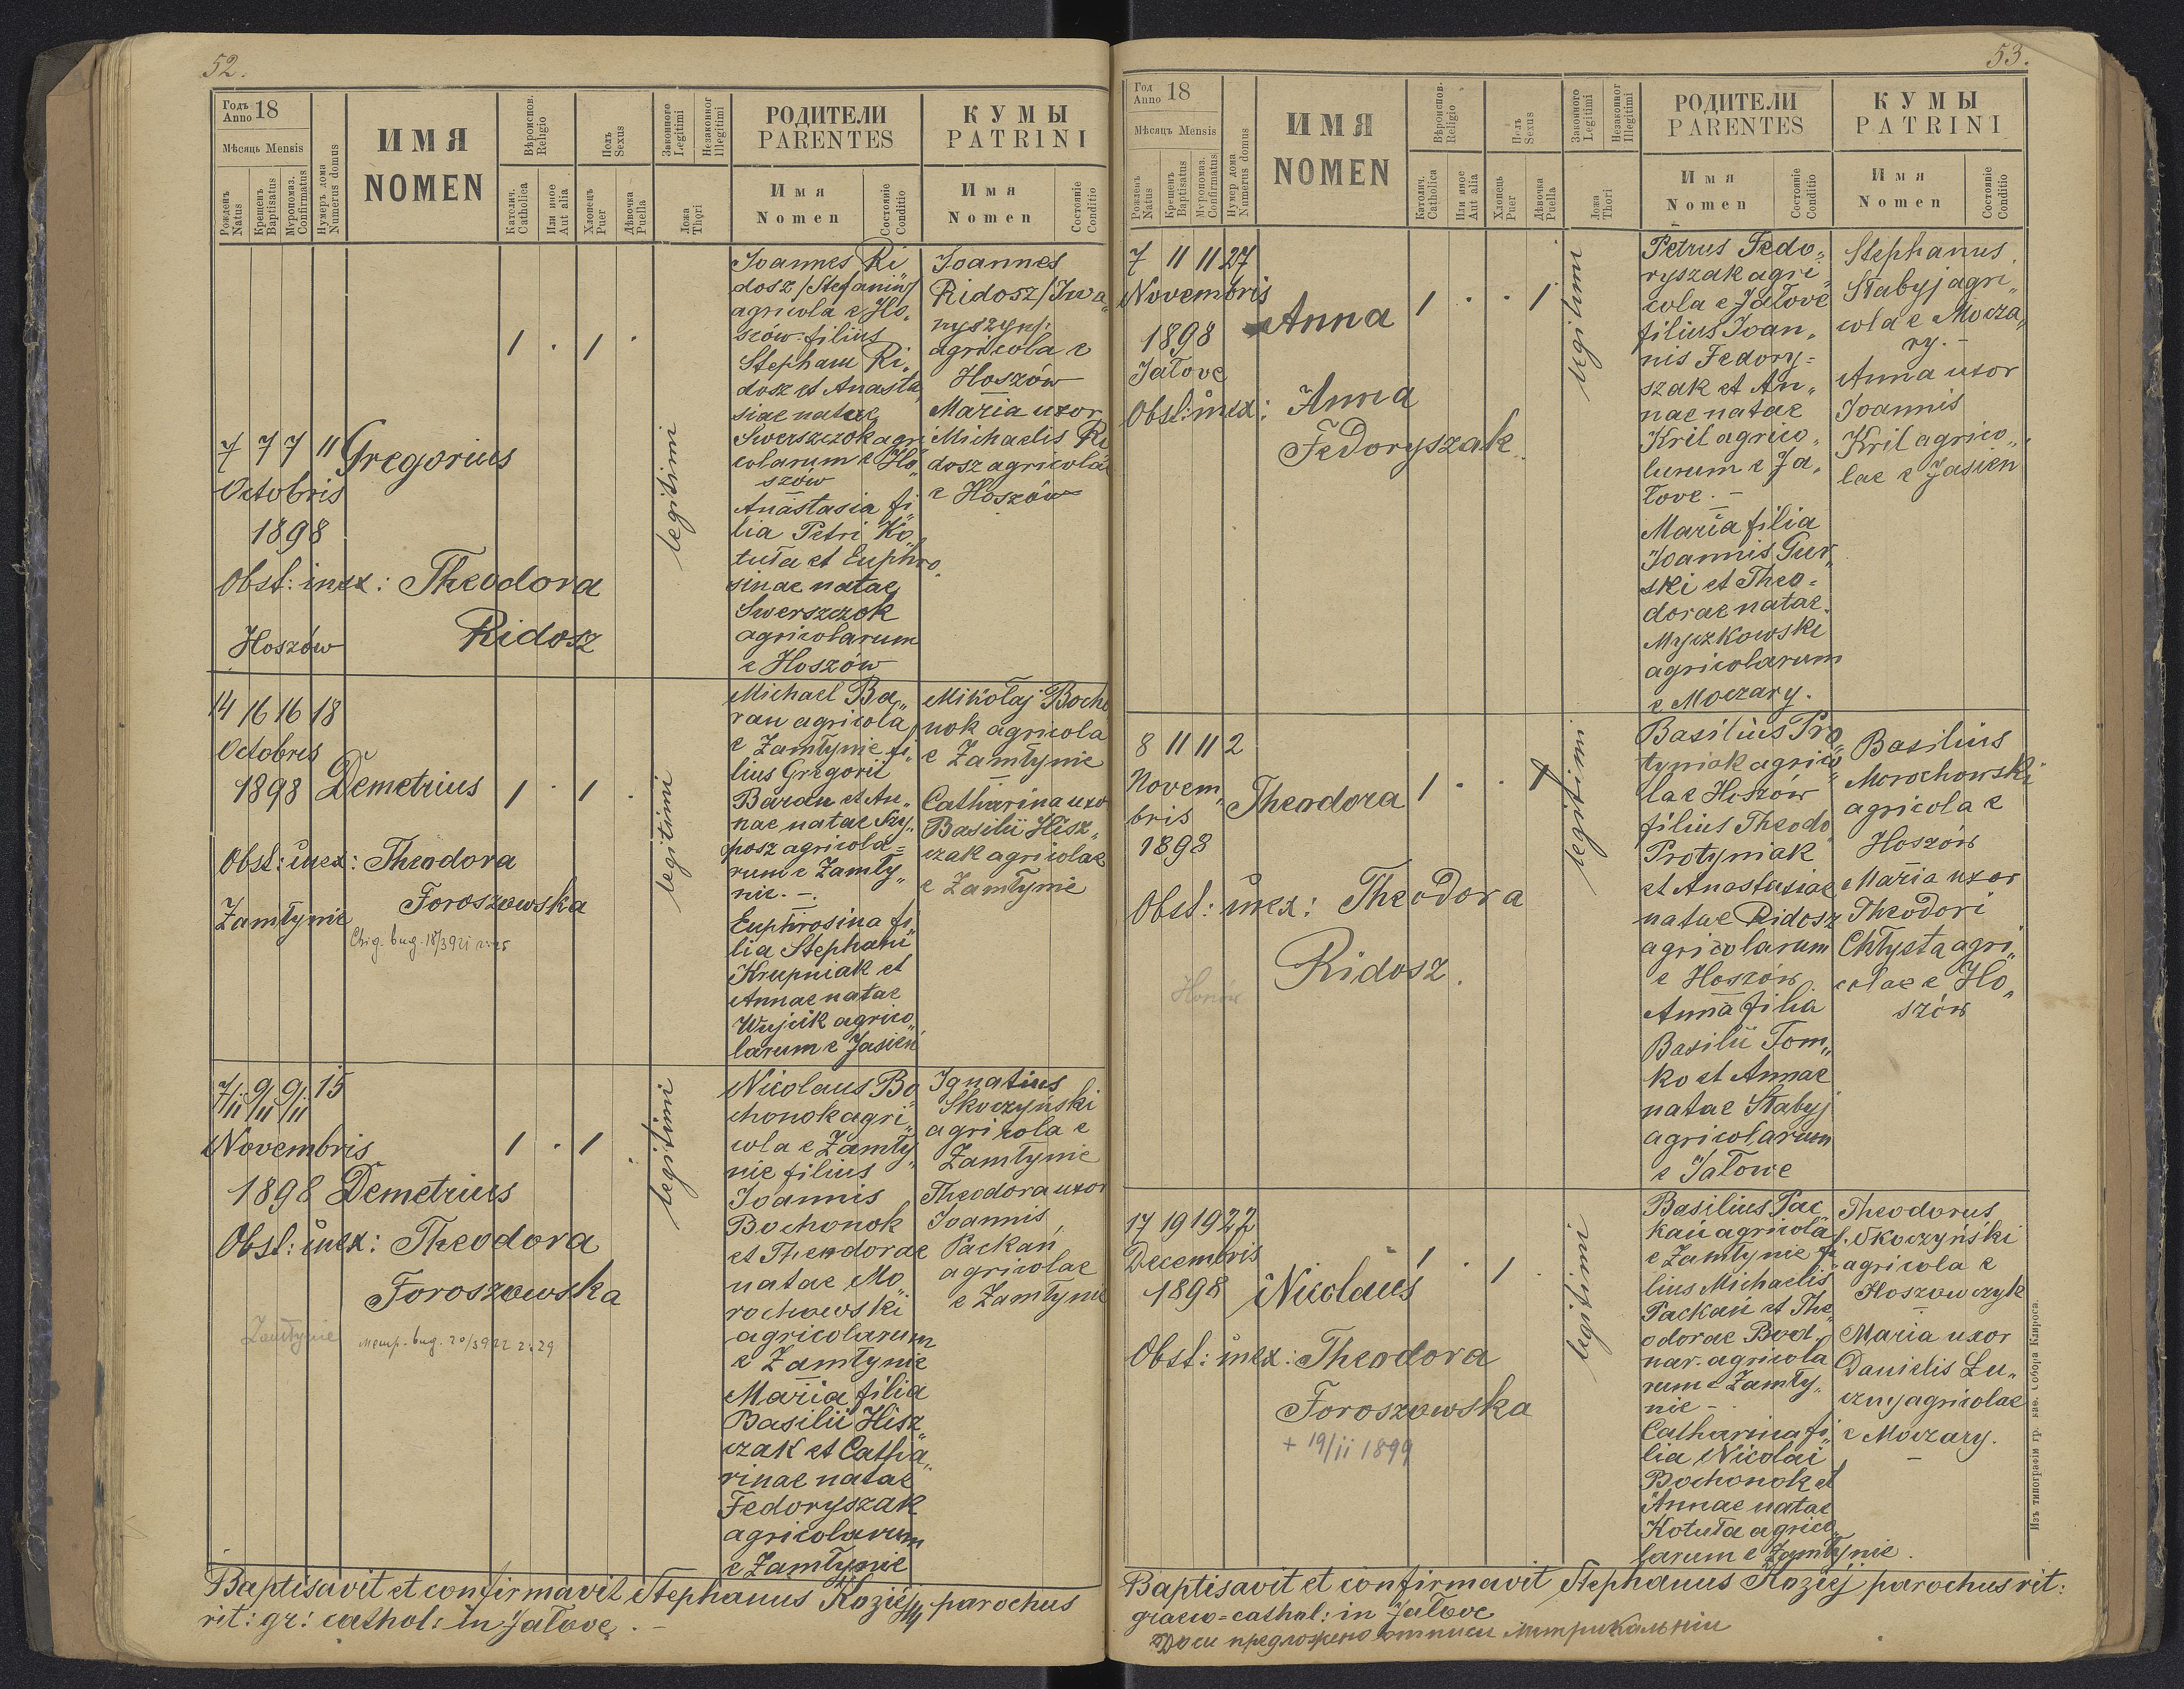 52.
Годъ Anno 18
Мѣсяць Mensis
Рожденъ Natus
Крещенъ Baptisatus
Муропомаз. Confirmatus
Нумеръ дома Numerus domus
ИМЯ
NOMEN
Вѣроиспов. Religio
Католич. Catholica
Или иное Aut alia
Полъ Sexus
Хлопець Puer
Дѣвочка Puella
Законного Legitimi
Незаконног Illegitimi
Ложа Thori
РОДИТЕЛИ
PARENTES
Имя
Nomen
Состояніе Conditio
КУМЫ
PATRINI
Имя
Nomen
Состояніе Conditio
7 7 7 11 Gregorius
Octobris
1898
Obst: inex: Theodora
Ridosz
Hoszów
1 . 1 .
legitimi
Joannes Ri
dosz /Stefaniw/
agricola e Ho„
szów filius
Stephani Ri„
dosz et Anasta
siae natae
Swerszczok agri
colarum e Ho„
szów
Anastasia fi„
lia Petri Ko„
tuła et Euphro„
sinae natae
Swerszczok
agricolarum
e Hoszów
Joannes
Ridosz /Iwa„
nyszyn/
agricola e
Hoszów
Maria uxor
Michaelis Ri
dosz agricolae
e Hoszów
14 16 16 18
Octobris
1898 Demetrius 1 . 1 .
Obst: inex: Theodora
Foroszowska
Zamłynie
legitimi
Michael Ba„
ran agricola
e Zamłynie fi„
lius Gregorii
Baran et An„
nae natae Szy„
posz agricola=
rum e Zamły„
nie. –
Euphrosina fi„
lia Stephani
Krupniak et
Annae natae
Wujcik agrico„
larum e Jasień
Mikołaj Bocho
nok agricola
e Zamłynie
Catharina uxo
Basilii Hisz„
czak agricolae
e Zamłynie
7/11 9/11 9/11 15
Novembris
1898 Demetrius
1 . 1 .
Obst: inex: Theodora
Foroszowska
Zamłynie
legitimi
Nicolaus Bo
chonok agri„
cola e Zamły„
nie filius
Joannis
Bochonok
et Theodorae
natae Mo„
rochowski
agricolarum
e Zamłynie
Maria filia
Basilii Hisz„
czak et Catha„
rinae natae
Fedoryszak
agricolarum
e Zamłynie
Ignatius
Skoczyński
agricola e
Zamłynie
Theodora uxor
Joannis
Packan
agricolae
e Zamłynie
Baptisavit et confirmavit Stephanus Koziej parochus
rit: gr: cathol: in Jałove. –
53.
Год Anno 18
Мѣсяць Mensis
Рожденъ Natus
Крещенъ Baptisatus
Муропомаз. Confirmatus
Нумер дома Numerus domus
ИМЯ
NOMEN
Вѣроиспов. Religio
Католич. Catholica
Или иное Aut alia
Полъ Sexus
Хлопець Puer
Дѣвочка Puella
Законного Legitimi
Незаконног Illegitimi
Ложа Thori
РОДИТЕЛИ
PARENTES
Имя
Nomen
Состояніе Conditio
КУМЫ
PATRINI
Имя
Nomen
Состояніе Conditio
7 11 11 27
Novembris
1898 Anna
1 . . 1
Jałove
Obst: inex: Anna
Fedoryszak
legitimi
Petrus Fedo„
ryszak agri„
cola e Jałove
filius Joan„
nis Fedory=
szak et An„
nae natae
Kril agrico„
larum e Ja„
łove. –
Maria filia
Joannis Gur„
ski et Theo=
dorae natae
Myczkowski
agricolarum
e Moczary.
Stephanus
Słabyj agri„
cola e Mocza„
ry. –
Anna uxor
Joannis
Kril agrico„
lae e Jasień
8 11 11 2
Novem„
bris
1898
Theodora 1 . . 1
Obst: inex: Theodora
Ridosz.
legitimi
Basilius Pro„
tyniak agrico„
la e Hoszów
filius Theodo
Protyniak
et Anastasiae
natae Ridosz
agricolarum
e Hoszów.
Anna filia
Basilii Tom„
ko et Annae
natae Słabyj
agricolarum
e Jałowe
Basilius
Morochowski
agricola e
Hoszów
Maria uxor
Theodori
Chłysta agri„
colae e Ho„
szów
17 19 19 22
Decembris
1898 Nicolaus
1 . 1 .
Obst: inex: Theodora
Foroszowska
+ 19/ii 1899
legitimi
Basilius Pac
kan agricola
e Zamłynie fi
lius Michaelis
Packan et The
odorae Bod„
nar. agricola
rum e Zamły„
nie –
Catharina fi„
lia Nicolai
Bochonok et
Annae natae
Kotuła agrico„
larum e Zamłynie.
Theodorus
Skoczyński
agricola e
Hoszowczyk
Maria uxor
Danielis Łu„
czny agricolae
e Moczary.
Изъ типографіи гр. каѳ. Собора Клироса.
Baptisavit et confirmavit Stephanus Koziej parochus rit:
graeco=cathol: in Jałove